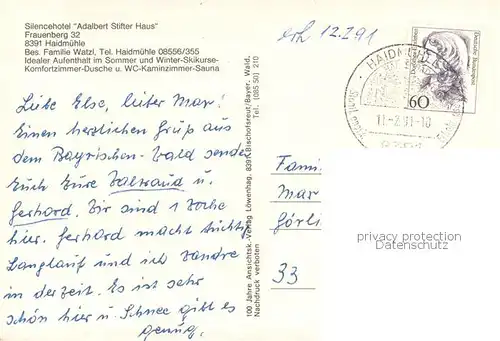 Silencehotel "Adalbert Stifter Haus"
Frauenberg 32
8391 Haidmühle
Bes. Familie Watzl, Tel. Haidmühle 08556/355
Idealer Aufenthalt im Sommer und Winter-Skikurse-
Komfortzimmer-Dusche u. WC-Kaminzimmer-Sauna
erh. 12.2.91
Liebe Else, lieber Max!
Einen herzlichen Gruß aus
dem Bayrischen-Wald sende
Euch Eure Waltraud u.
Gerhard. Wir sind 1 Woche
hier. Gerhard macht
Langlauf und ich wandre
in der Zeit. Es ist sehr
schön hier u. Schnee gibt es
genug.
100 Jahre Ansichtsk.-Verlag Löwenhag, 8391 Bischofsreut/Bayer. Wald.
Nachdruck verboten
Tel. (085 50) 210
HAIDMÜHLE
11.-2.91-10
60
Deutsche Bundespost
Fami
Max
Görli
33
privacy protection
Datenschutz